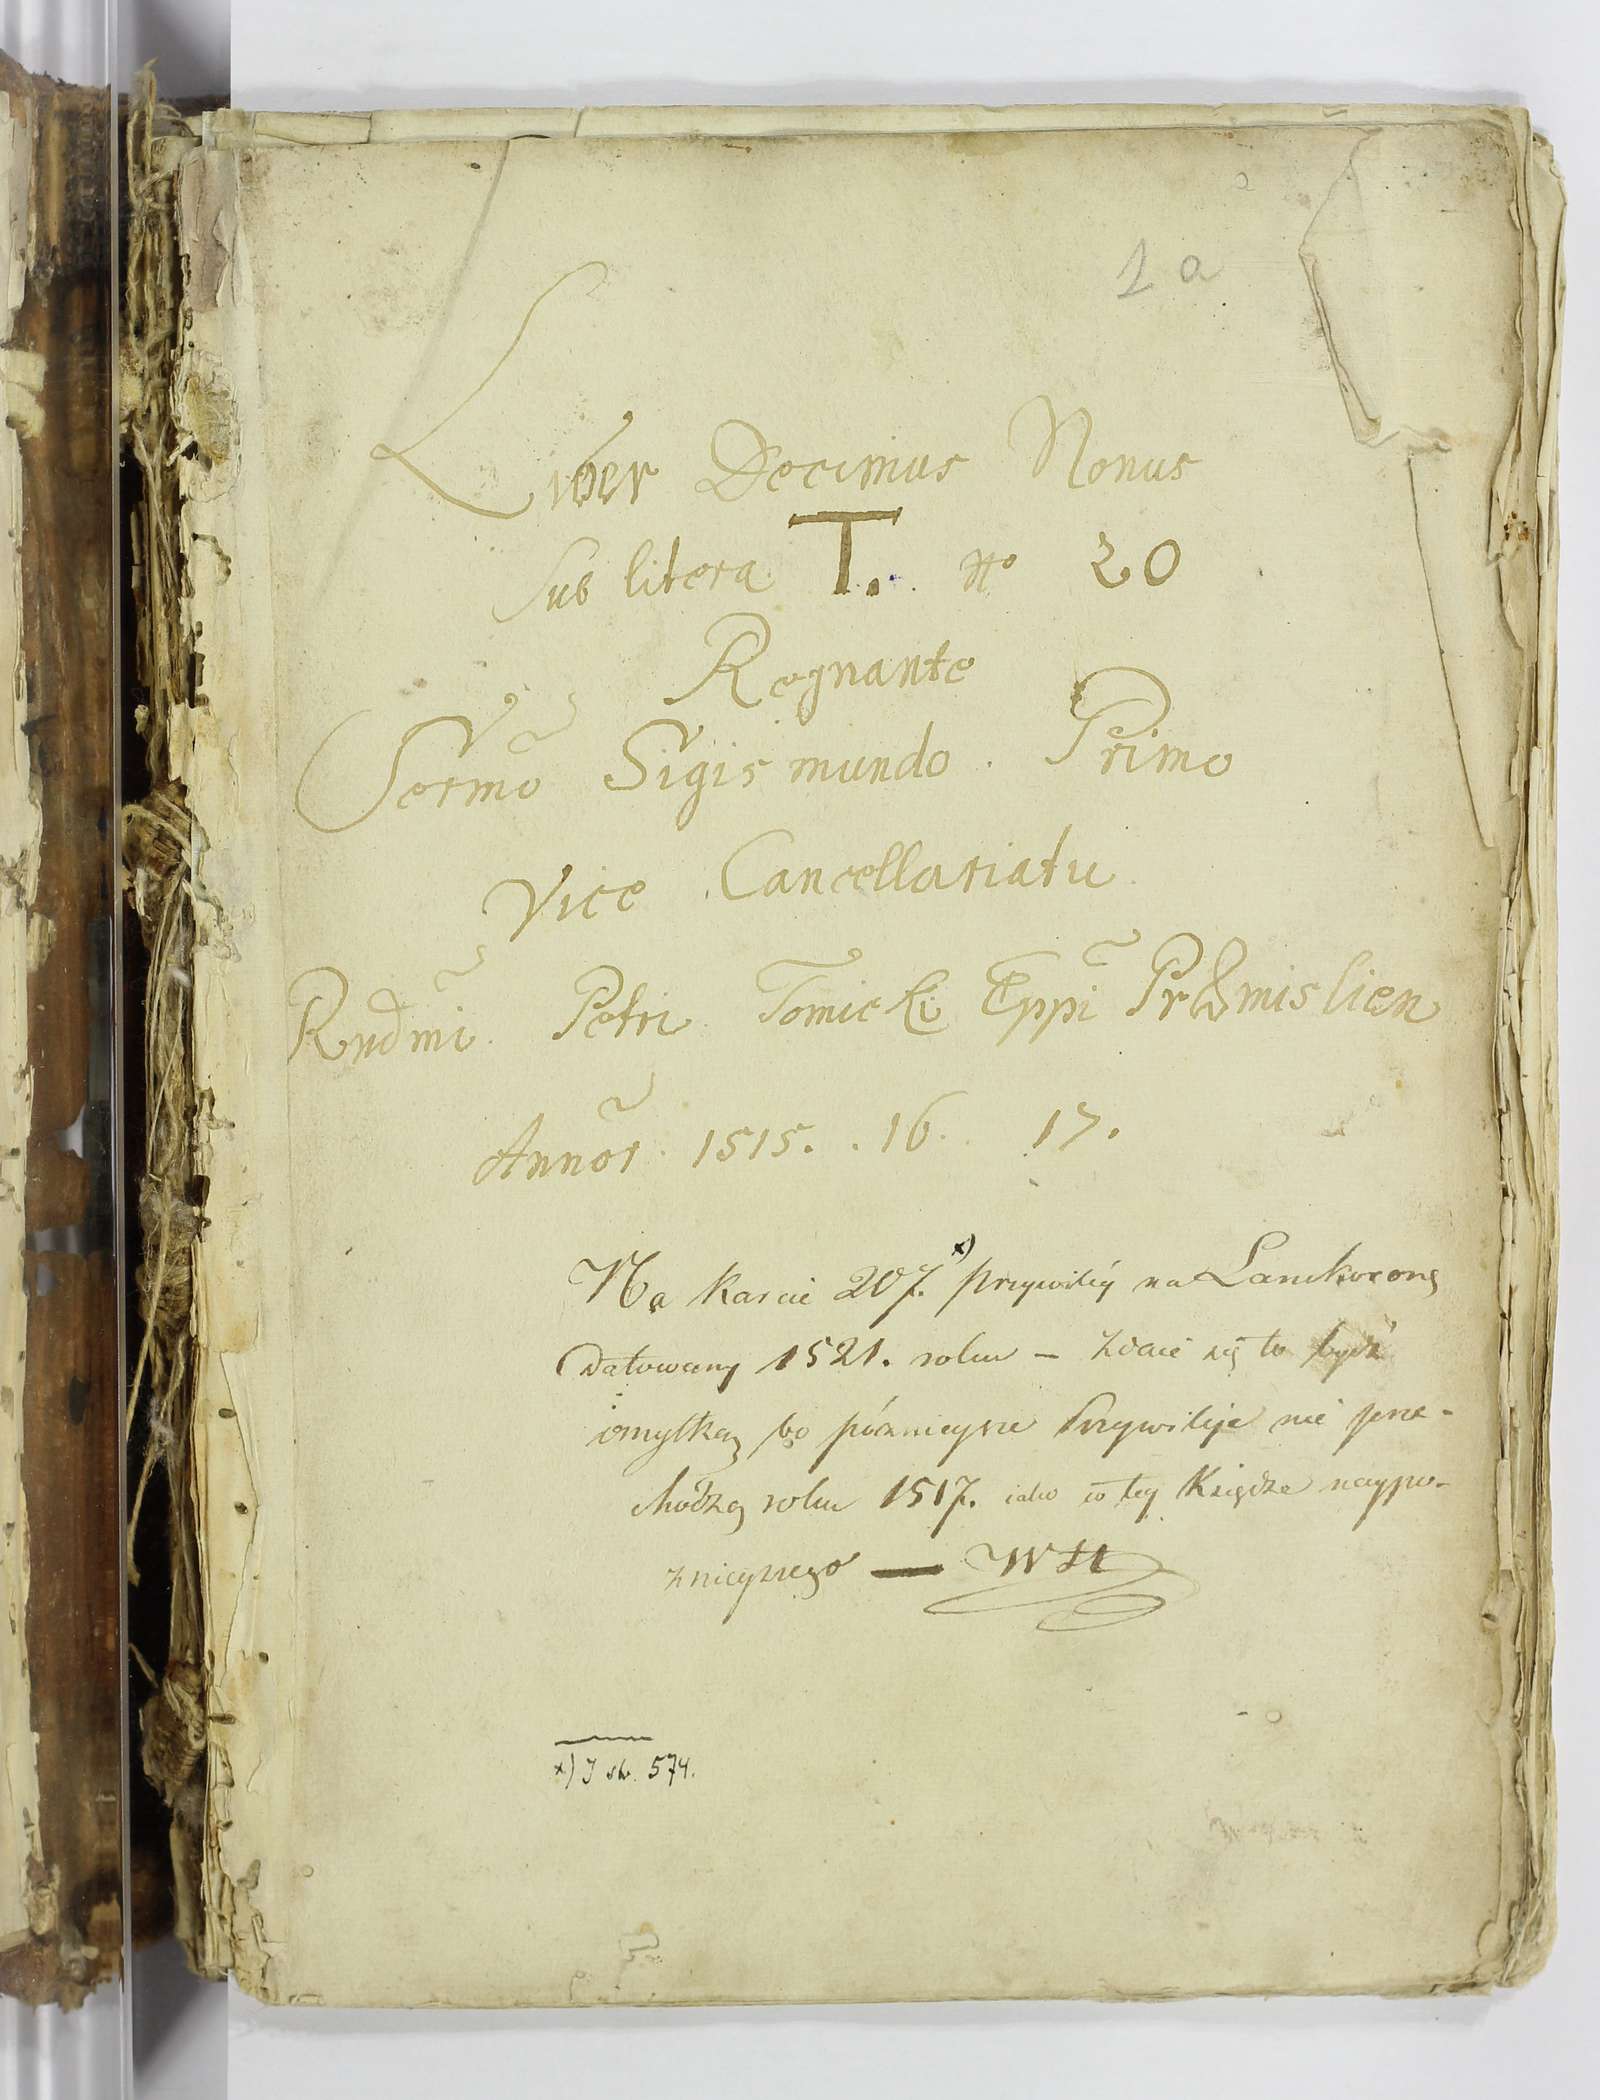 1 a
Liber Decimus Nonus
Sub litera T. No 20
Regnante
Sermo Sigismundo. Primo
Vice Cancellariatu
Rndmi. Petri Tomicki Eppi Præmislien
Annor. 1515. . 16. 17.
Na karcie 207. x) przywiléy na Lanckoronę
datowany 1521. roku – zdaie się to bydź
omyłką bo póznieysze Przywileje nie prze-
chodzą roku 1517. iako w tey Księdze naypo-
znieyszego — WH
x) I str. 574.